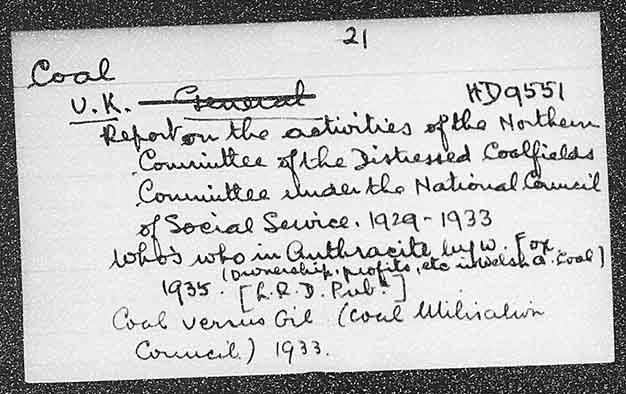 21
Coal
U.K. — General HD9551
Report on the activities of the Northern
Committee of the Distressed Coalfields
Committee under the National Council
of Social Service. 1929-1933
Who's who in Anthracite by W. Fox.
(Ownership, profits, etc in Welsh a. coal)
1935. [L.R.D. Pub.]
Coal versus Oil (Coal Utilisation
Council) 1933.